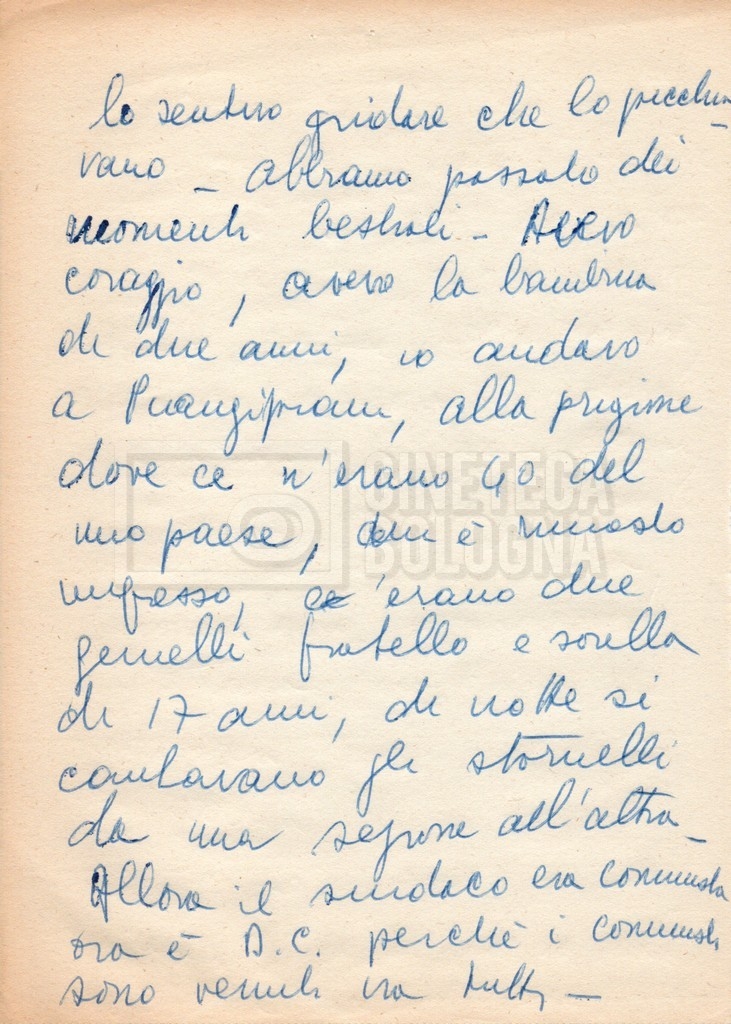 lo sentivo gridare che lo picchia
vano - abbiamo passato dei
momenti bestiali - Avevo
coraggio, avevo la bambina
di due anni, io andavo
a Piangipani, alla prigione
dove ce n'erano 40 del
mio paese, chi è rimasto
impresso, c'erano due
gemelli fratello e sorella
di 17 anni, di notte si
cantavano gli stornelli
da una segione all'altra -
Allora il sindaco era comunista
ora è D.C. perchè i comunisti
sono venuti via tutti -
CINETECA
BOLOGNA